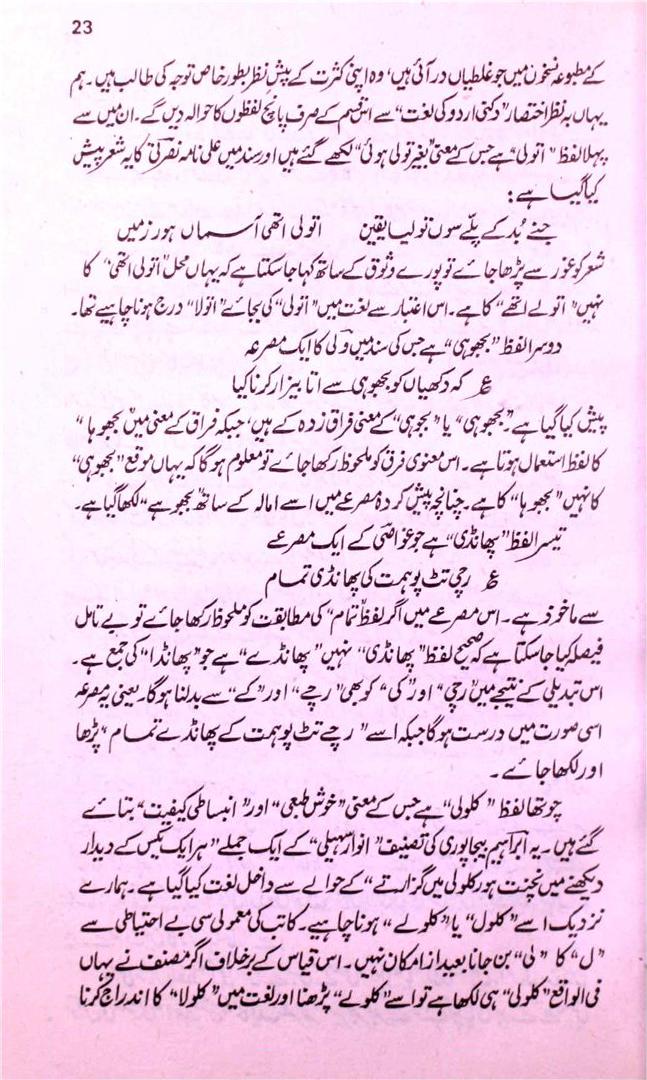 23
کے مطبوعہ نسخوں میں جو غلطیاں در آئی ہیں، وہ اپنی کثرت کے پیش نظر بطور خاص توجہ کی طالب ہیں۔ ہم
یہاں بہ نظر اختصار "دکنی اردو کی لغت" سے اس قسم کے صرف پانچ لفظوں کا حوالہ دیں گے۔ ان میں سے
پہلا لفظ "اتولی" ہے جس کے معنی "بغیر تولی ہوئی" لکھے گئے ہیں اور سند میں علی نامہ نصرتی کا یہ شعر پیش
کیا گیا ہے:
جتے بُد کے پلّے سوں تولیا یقین اتولی اتھی آسماں ہور زمیں
شعر کو غور سے پڑھا جائے تو پورے وثوق کے ساتھ کہا جا سکتا ہے کہ یہاں محل "اتولی اتھی" کا
نہیں "اتولے اتھے" کا ہے۔ اس اعتبار سے لغت میں "اتولی" کی بجائے "اتولا" درج ہونا چاہیے تھا۔
دوسرا لفظ "بجھوہی" ہے جس کی سند میں ولی کا ایک مصرعہ
ع کہ دکھیاں کو بجھوہی سے اتا بیزار کرنا کیا
پیش کیا گیا ہے "بجھوہی" یا "بجوہی" کے معنی فراق زدہ کے ہیں، جبکہ فراق کے معنی میں "بجھوہا"
کا لفظ استعمال ہوتا ہے۔ اس معنوی فرق کو ملحوظ رکھا جائے تو معلوم ہوگا کہ یہاں موقع "بجھوہی"
کا نہیں "بجھوہا" کا ہے۔ چنانچہ پیش کردہ مصرعے میں اسے امالہ کے ساتھ "بجھوہے" لکھا گیا ہے۔
تیسرا لفظ "پھانڈی" ہے جو غواصی کے ایک مصرعے
ع رچی تٹ پو ہمت کی پھانڈی تمام
سے ماخوذ ہے۔ اس مصرعے میں اگر لفظ "تمام" کی مطابقت کو ملحوظ رکھا جائے تو بے تامل
فیصلہ کیا جا سکتا ہے کہ صحیح لفظ "پھانڈی" نہیں "پھانڈے" ہے جو "پھانڈا" کی جمع ہے۔
اس تبدیلی کے نتیجے میں "رچی" اور "کی" کو بھی "رچے" اور "کے" سے بدلنا ہوگا۔ یعنی یہ مصرعہ
اسی صورت میں درست ہوگا جبکہ اسے "رچے تٹ پو ہمت کے پھانڈے تمام" پڑھا
اور لکھا جائے۔
چوتھا لفظ "کلولی" ہے جس کے معنی "خوش طبعی" اور "انبساطی کیفیت" بتائے
گئے ہیں۔ یہ ابراہیم بیجاپوری کی تصنیف "انوار سہیلی" کے ایک جملے "ہر ایک یکس کے دیدار
دیکھنے میں نچنت ہور کلولی میں گزارتے" کے حوالے سے داخل لغت کیا گیا ہے۔ ہمارے
نزدیک اسے "کلول" یا "کلولے" ہونا چاہیے۔ کاتب کی معمولی سی بے احتیاطی سے
"ل" کا "لی" بن جانا بعید از امکان نہیں۔ اس قیاس کے برخلاف اگر مصنف نے یہاں
فی الواقع "کلولی" ہی لکھا ہے تو اسے "کلولے" پڑھنا اور لغت میں "کلولا" کا اندراج کرنا